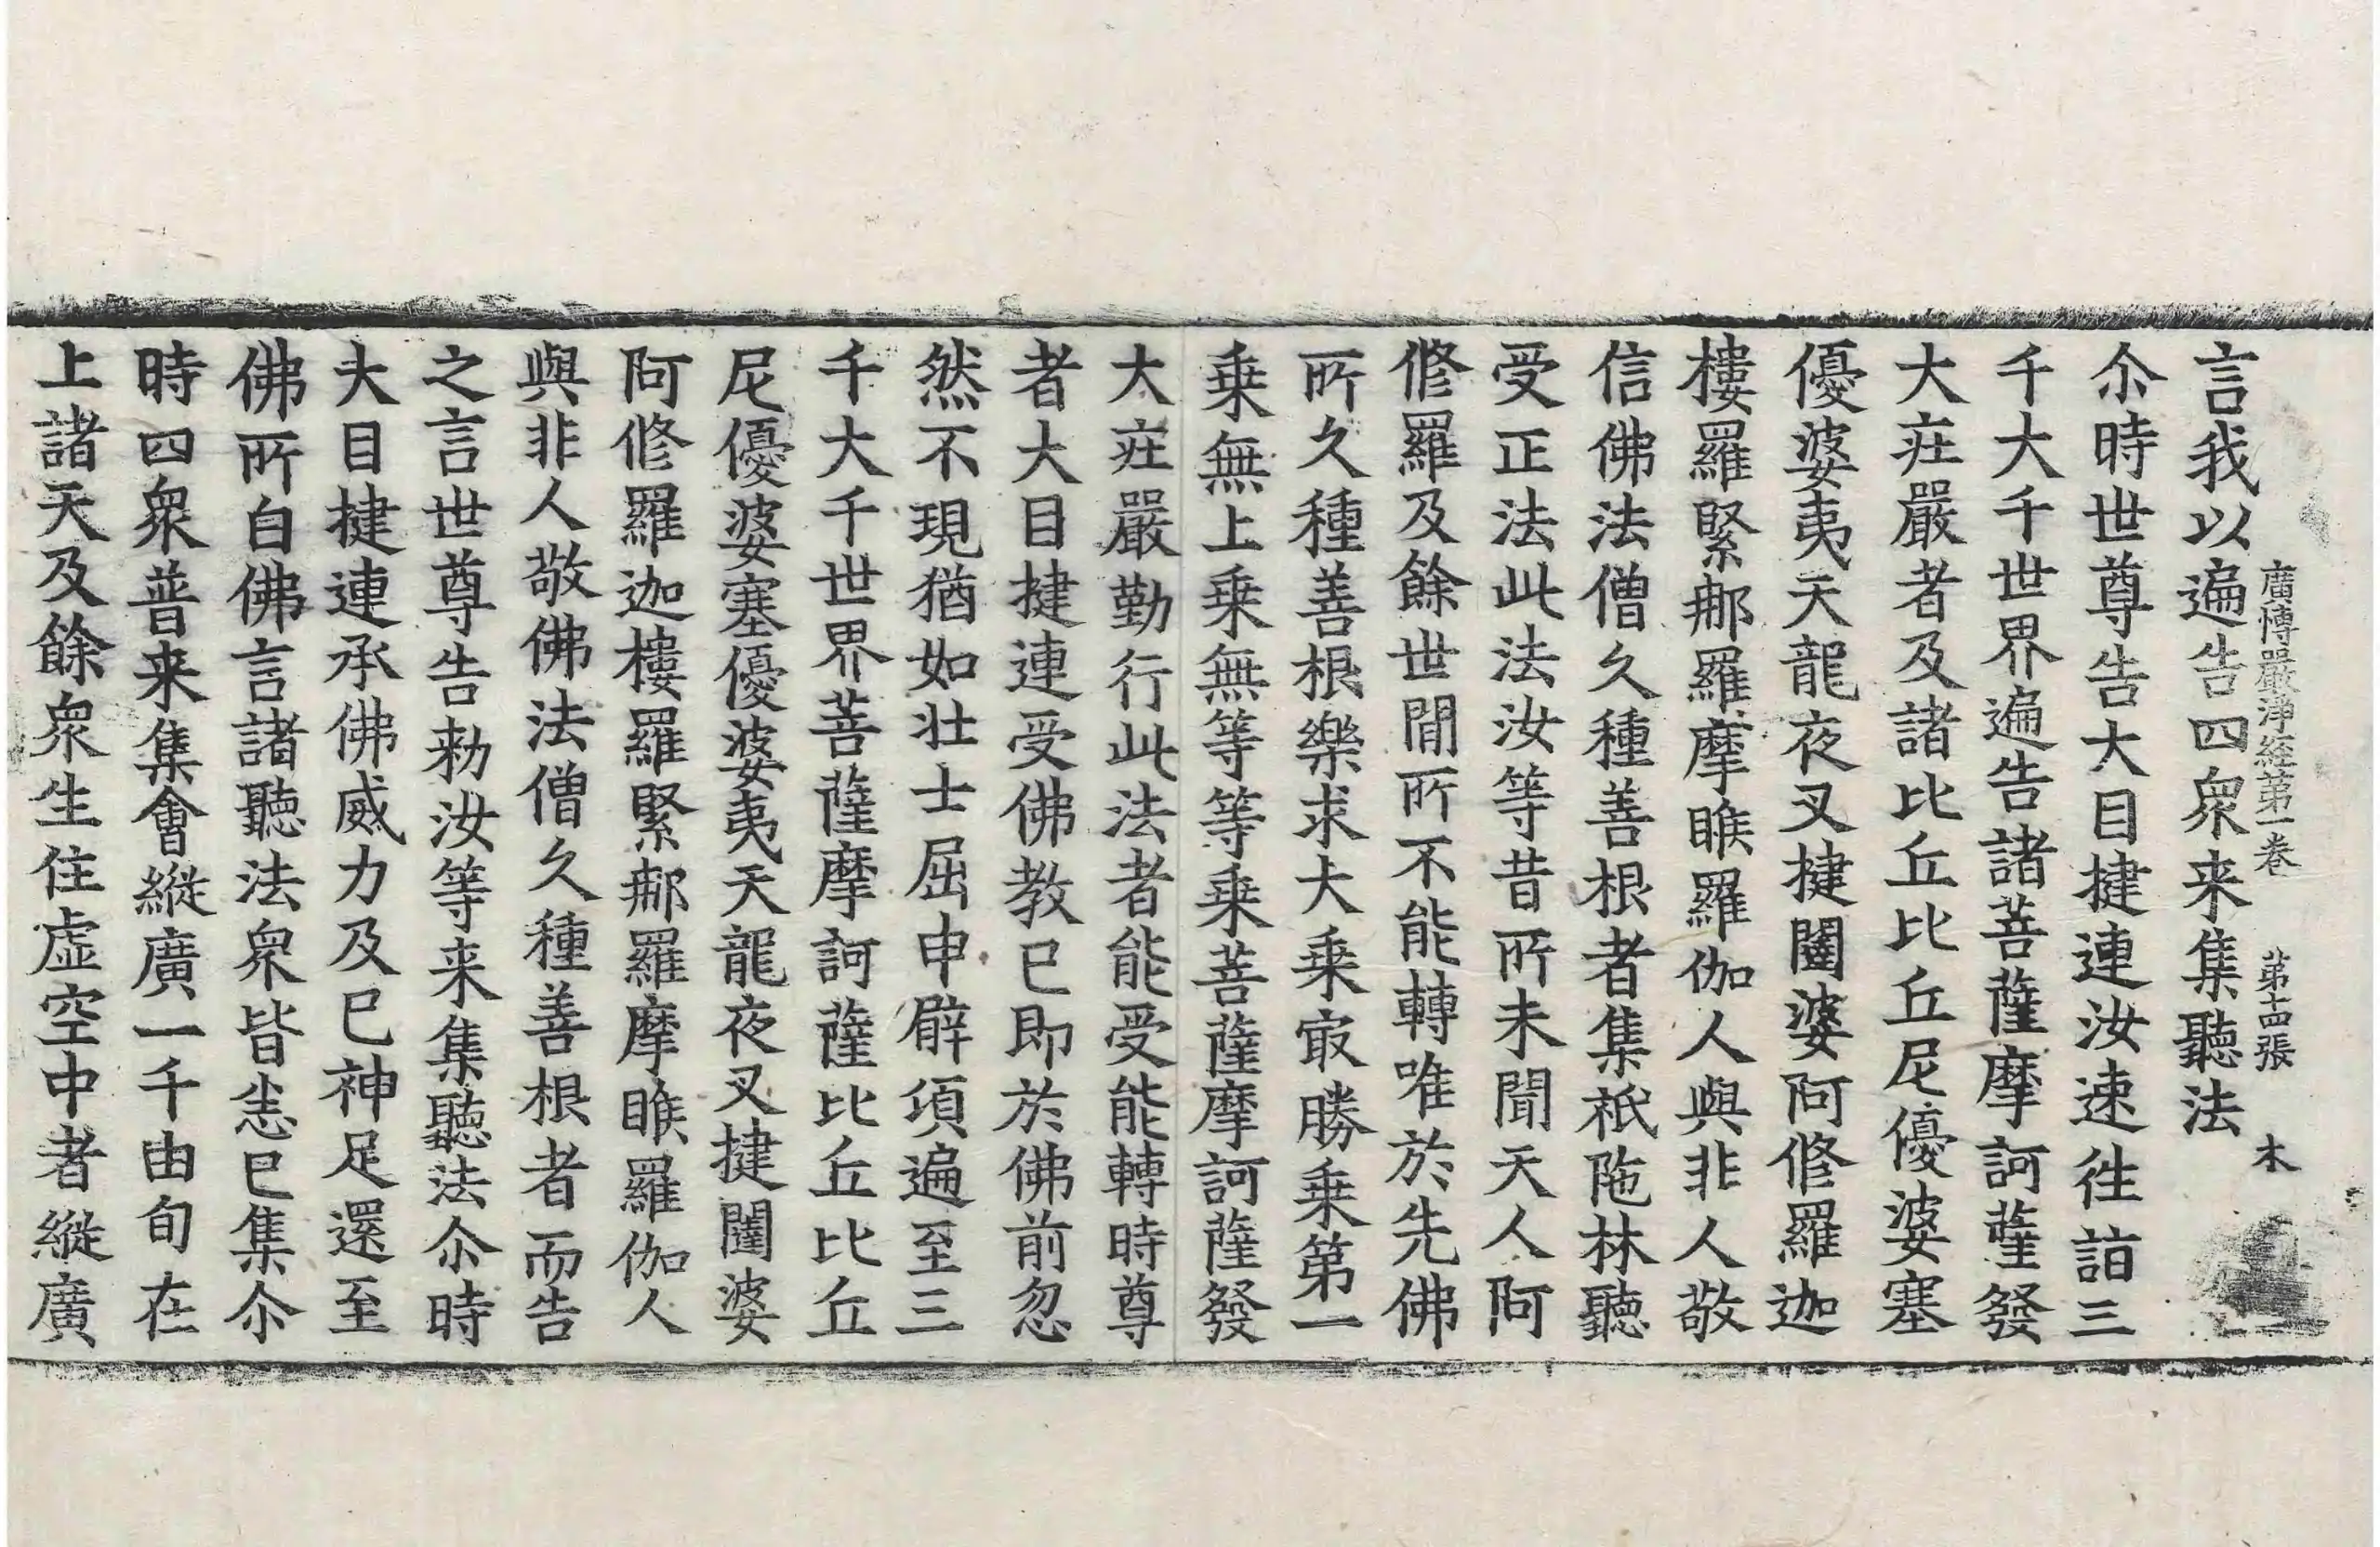 廣愽嚴淨經第一卷 第十四張 木
言我以遍告四衆来集聽法
尒時世尊告大目揵連汝速往詣三
千大千世界遍告諸菩薩摩訶薩發
大莊嚴者及諸比丘比丘尼優婆塞
優婆夷天龍夜叉揵闥婆阿修羅迦
樓羅緊那羅摩睺羅伽人與非人敬
信佛法僧久種善根者集祇陁林聽
受正法此法汝等昔所未聞天人阿
修羅及餘世閒所不能轉唯於先佛
所久種善根樂求大乗㝡勝乗第一
乗無上乗無等等乗菩薩摩訶薩發
大莊嚴勤行此法者能受能轉時尊
者大目揵連受佛教已即於佛前忽
然不現猶如壮士屈申臂頃遍至三
千大千世界菩薩摩訶薩比丘比丘
尼優婆塞優婆夷天龍夜叉揵闥婆
阿修羅迦樓羅緊那羅摩睺羅伽人
與非人敬佛法僧久種善根者而告
之言世尊告勑汝等来集聽法尒時
大目揵連承佛威力及已神足還至
佛所白佛言諸聽法衆皆悉已集尒
時四衆普来集會縱廣一千由旬在
上諸天及餘衆生住虛空中者縱廣